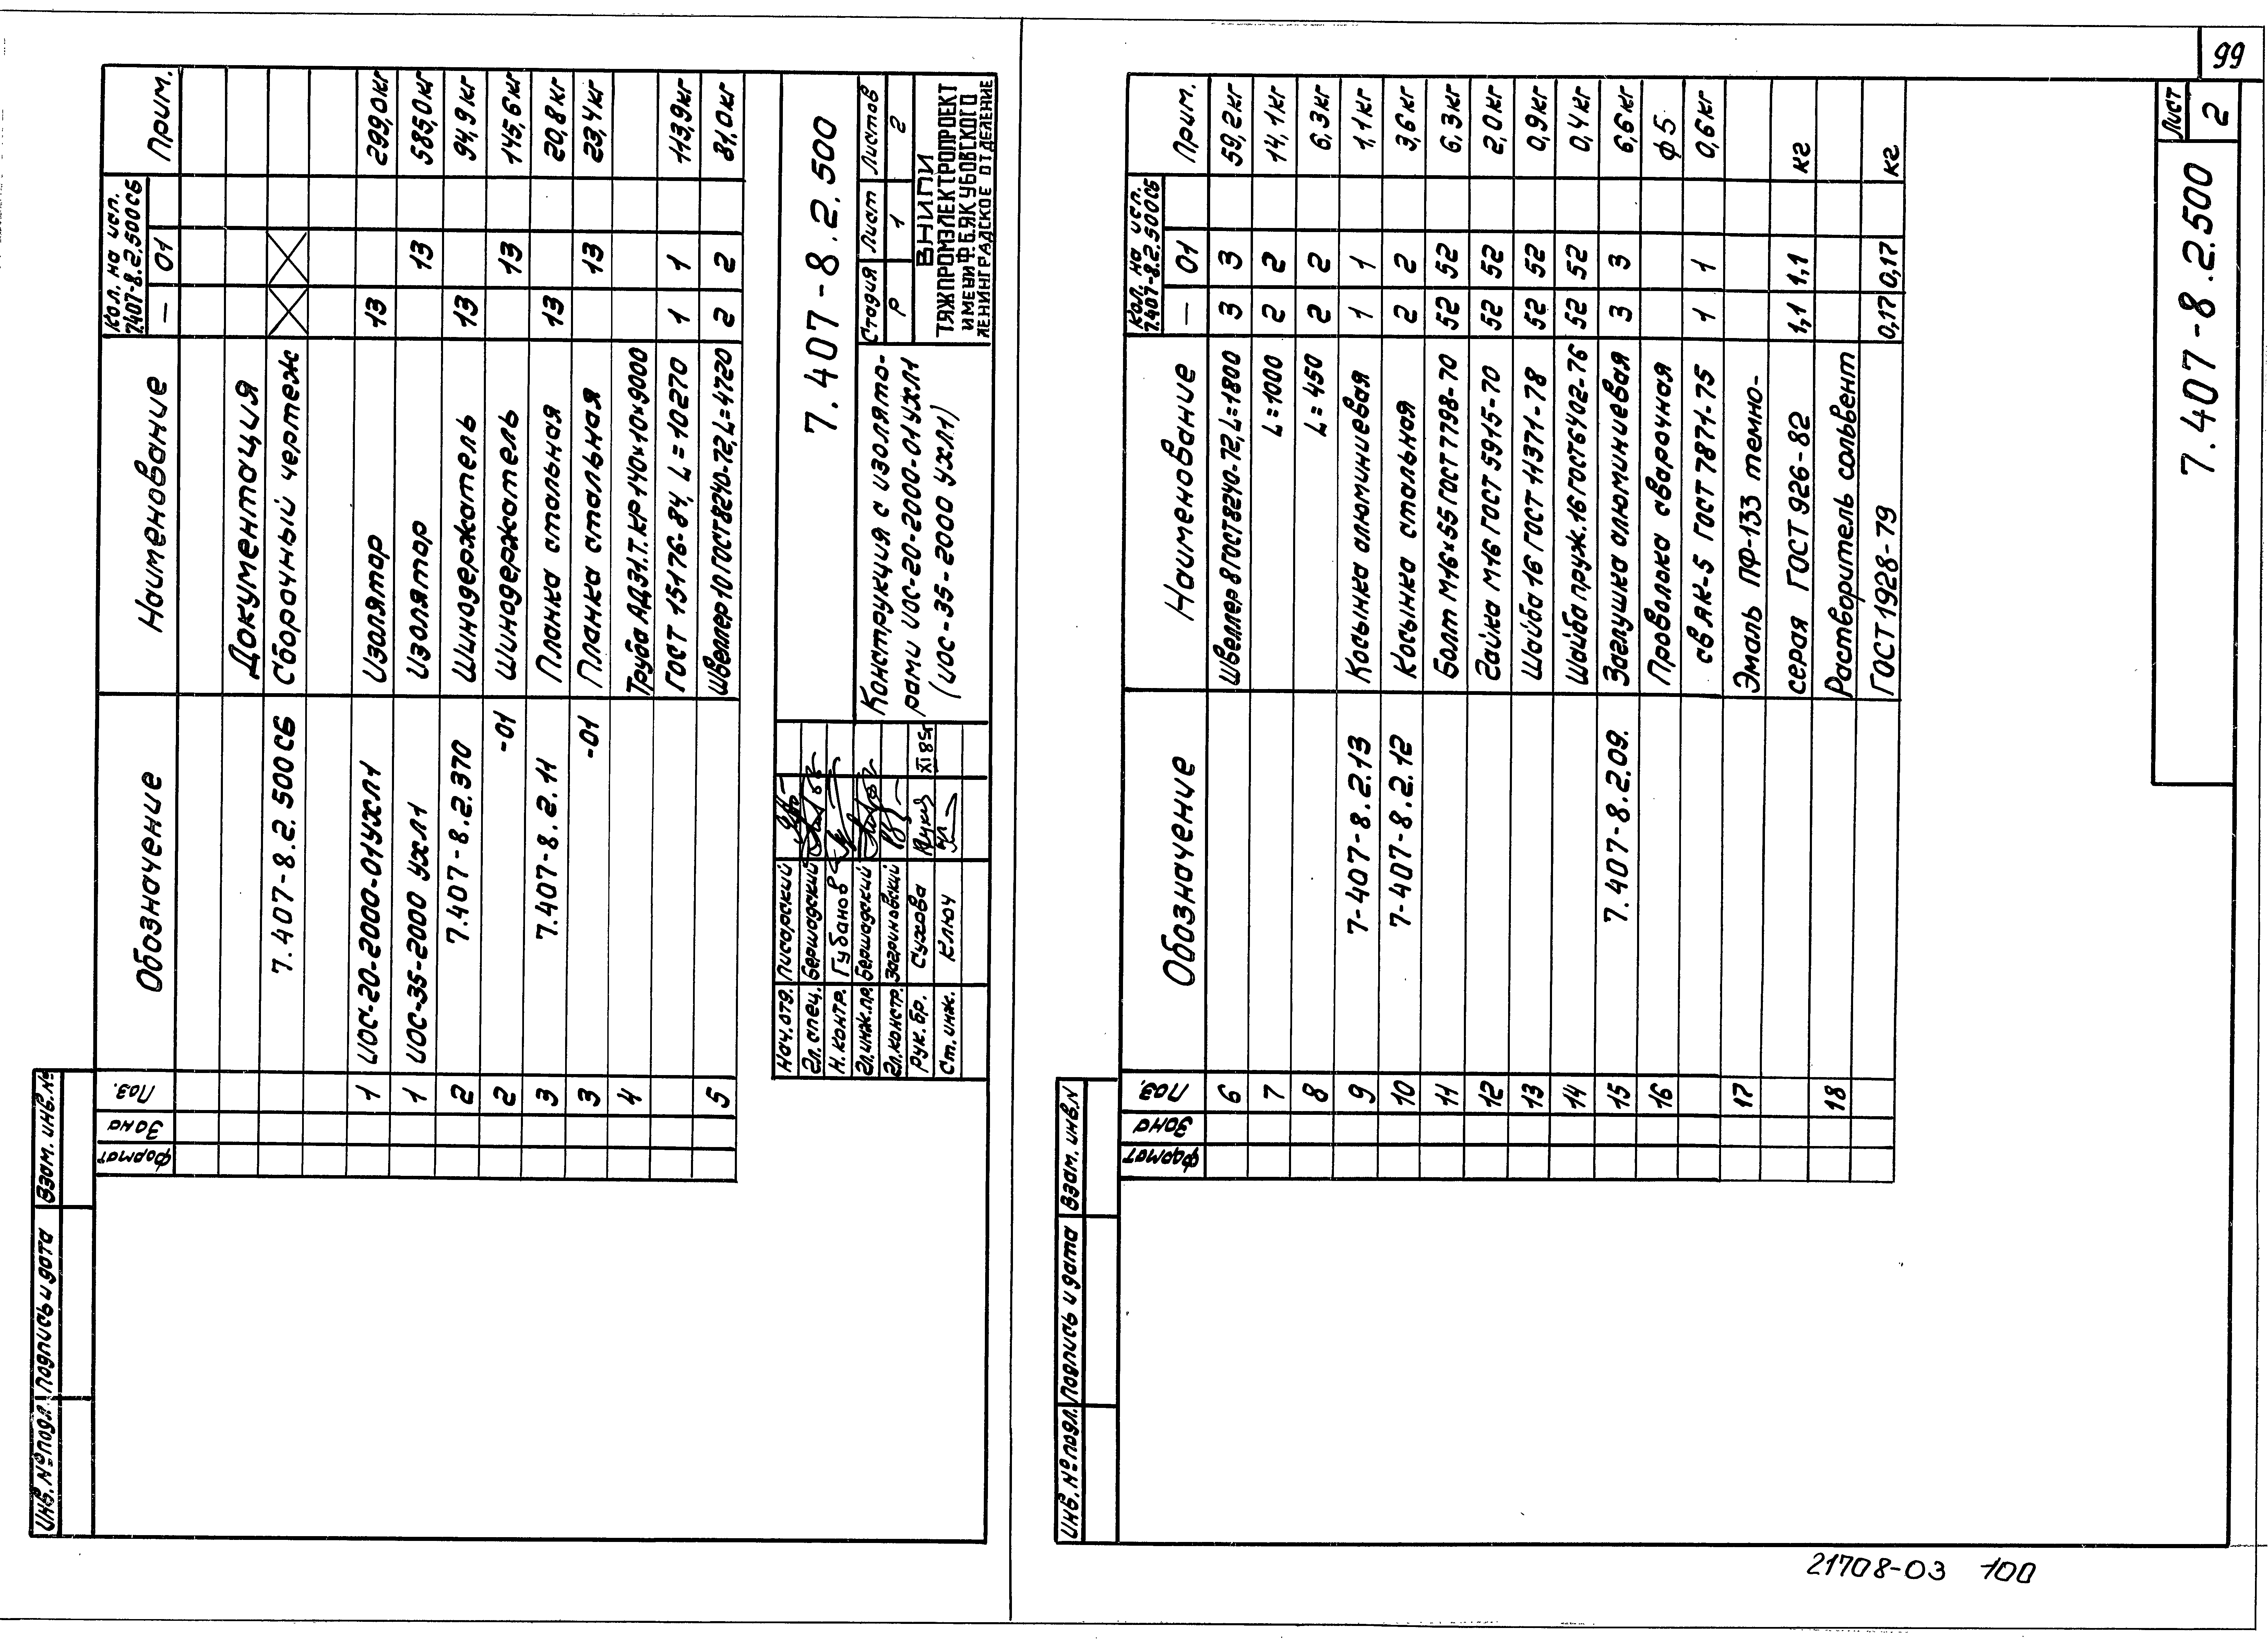 Формат Зона Поз. Обозначение Наименование Кол. на исп. 7.407-8.2.500СБ — 01 Прим.
Документация
7.407-8.2.500СБ Сборочный чертеж
1 ИОС-20-2000-01УХЛ1 Изолятор 13 299,0кг
1 ИОС-35-2000 УХЛ1 Изолятор 13 585,0кг
2 7.407-8.2.370 Шинодержатель 13 94,9кг
2 -01 Шинодержатель 13 145,6кг
3 7.407-8.2.11 Планка стальная 13 20,8кг
3 -01 Планка стальная 13 23,4кг
4 Труба АД31.Т.КР140×10×9000
ГОСТ 15176-84, L=10270 1 1 113,9кг
5 Швеллер10ГОСТ8240-72,L=4720 2 2 81,0кг
7.407-8.2.500
Нач.отд. Писарский
Гл.спец. Бершадский
Н.контр. Губанов
Гл.инж.пр. Бершадский
Гл.констр. Загриновский
Рук.бр. Сухова XI 85г
Ст.инж. Ключ
Конструкция с изолято-
рами ИОС-20-2000-01УХЛ1
(ИОС-35-2000 УХЛ1)
Стадия Лист Листов
Р 1 2
ВНИПИ
ТЯЖПРОМЭЛЕКТРОПРОЕКТ
ИМЕНИ Ф.Б.ЯКУБОВСКОГО
ЛЕНИНГРАДСКОЕ ОТДЕЛЕНИЕ
Инв.№подл. Подпись и дата Взам. инв.№
99
Формат Зона Поз. Обозначение Наименование Кол. на исп. 7.407-8.2.500СБ — 01 Прим.
6 Швеллер 8ГОСТ8240-72,L=1800 3 3 59,2кг
7 L=1000 2 2 14,1кг
8 L=450 2 2 6,3кг
9 7-407-8.2.13 Косынка алюминиевая 1 1 1,1кг
10 7-407-8.2.12 Косынка стальная 2 2 3,6кг
11 Болт М16×55ГОСТ7798-70 52 52 6,3кг
12 Гайка М16 ГОСТ 5915-70 52 52 2,0кг
13 Шайба 16 ГОСТ 11371-78 52 52 0,9кг
14 Шайба пруж.16ГОСТ6402-76 52 52 0,4кг
15 7.407-8.2.09. Заглушка алюминиевая 3 3 6,6кг
16 Проволока сварочная ф5
свАК-5 ГОСТ 7871-75 1 1 0,6кг
17 Эмаль ПФ-133 темно-
серая ГОСТ 926-82 1,1 1,1 кг
18 Растворитель сольвент
ГОСТ1928-79 0,17 0,17 кг
7.407-8.2.500
Лист
2
Инв.№подл. Подпись и дата Взам. инв.№
21708-03 100